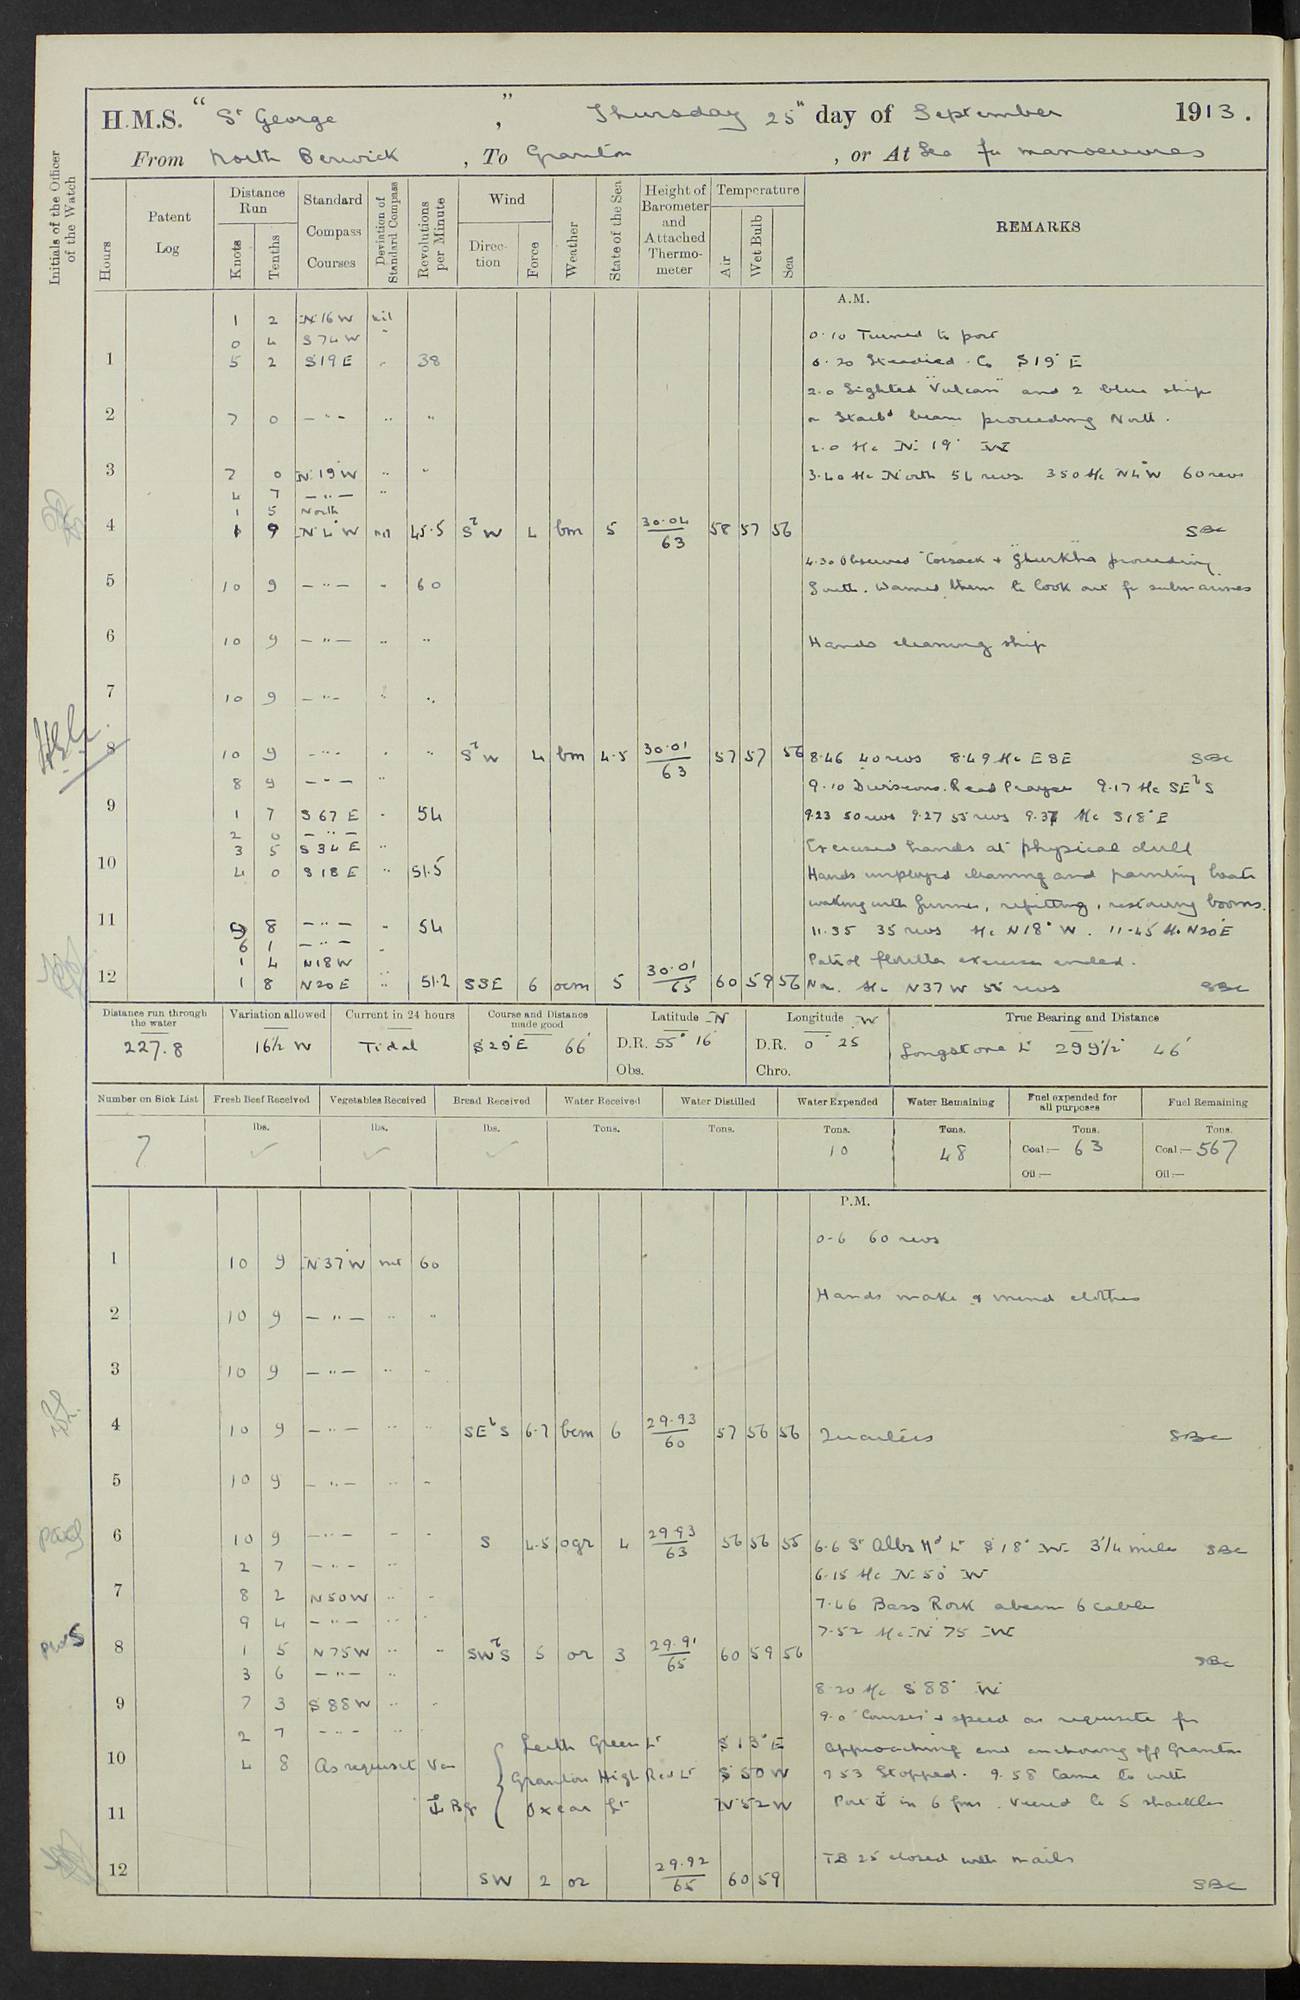 H.M.S. "St George", Thursday 25th day of September 1913.
From North Berwick, To Granton, or At Sea for manoeuvres
Initials of the Officer of the Watch
Hours
Patent Log
Distance Run
Knots
Tenths
Standard Compass Courses
Deviation of Standard Compass
Revolutions per Minute
Wind
Direction
Force
Weather
State of the Sea
Height of Barometer and Attached Thermometer
Temperature
Air
Wet Bulb
Sea
REMARKS
A.M.
1 2 N16W nil
0 4 S74W " 0.10 Turned to port
1 5 2 S19E " 38 0.20 Steadied Co S19°E
2.0 Sighted "Vulcan" and 2 blue ships
2 7 0 — " — " " on Starbd beam proceeding North.
2.0 A/c N 19° W
3 7 0 N19W " " 3.40 A/c North 56 revs 3.50 A/c N4°W 60 revs
4 7 — " — "
1 5 North
4 1 9 N4°W nil 45.5 SbW 4 bm 5 30.04/63 58 57 56 SBC
4.30 Observed "Cossack" & "Ghurkha" proceeding
5 10 9 — " — " 60 South. Warned them to look out for submarines
6 10 9 — " — " " Hands cleaning ship
7 10 9 — " — " "
8 10 9 — " — " " SbW 4 bm 4.5 30.01/63 57 57 56 8.46 40 revs 8.49 A/c ESE SBC
8 9 — " — " 9.10 Divisions. Read Prayers 9.17 A/c SEbS
9 1 7 S67E " 54 9.23 50 revs 9.27 55 revs 9.37 A/c S18°E
2 0 — " —
3 5 S34E " Exercised hands at physical drill
10 4 0 S18E " 51.5 Hands employed cleaning and painting boats
working with Gunner, refitting, restowing booms.
11 9 8 — " — " 54 11.35 35 revs A/c N18°W. 11.45 A/c N20E
6 1 — " — "
1 4 N18W Patrol flotilla exercise ended.
12 1 8 N20E " 51.2 SSE 6 ocm 5 30.01/65 60 59 56 Nn. A/c N37W 55 revs SBC
Distance run through the water 227.8
Variation allowed 16½ W
Current in 24 hours Tidal
Course and Distance made good S29°E 66'
Latitude N D.R. 55° 16' Obs.
Longitude W D.R. 0° 25 Chro.
True Bearing and Distance Longstone Lt 299½° 46'
Number on Sick List 7
Fresh Beef Received lbs.
Vegetables Received lbs.
Bread Received lbs.
Water Received Tons.
Water Distilled Tons.
Water Expended Tons. 10
Water Remaining Tons. 48
Fuel expended for all purposes Tons. Coal:— 63 Oil:—
Fuel Remaining Tons. Coal:— 567 Oil:—
P.M.
0-6 60 revs
1 10 9 N37°W nil 60
Hands make & mend clothes
2 10 9 — " — " "
3 10 9 — " — " "
4 10 9 — " — " " SEbS 6-7 bcm 6 29.93/60 57 56 56 Quarters SBC
5 10 9 — " — " "
6 10 9 — " — " " S 4.5 ogr 4 29.93/63 56 56 55 6.6 St Abbs Hd Lt S18°W 3¼ miles SBC
2 7 — " — 6.15 A/c N 50 W
7 8 2 N50W " " 7.46 Bass Rock abeam 6 cables
9 4 — " — " 7.52 A/c N 75 W
8 1 5 N75W " " SWbS 5 or 3 29.91/65 60 59 56 SBC
3 6 — " — "
8.20 A/c S 88° W
9 7 3 S88W " " 9.0 Courses & speed as requisite for
2 7 — " — " Leith Green Lt S13°E approaching and anchoring off Granton
10 4 8 As requisit Var Granton High Red Lt S50W 9.53 Stopped. 9.58 Came to with
11 ⚓ Bg Oxcar Lt N52W Port ⚓ in 6 fms. Veered to 5 shackles
TB 25 closed with mails
12 SW 2 or 29.92/65 60 59 SBC